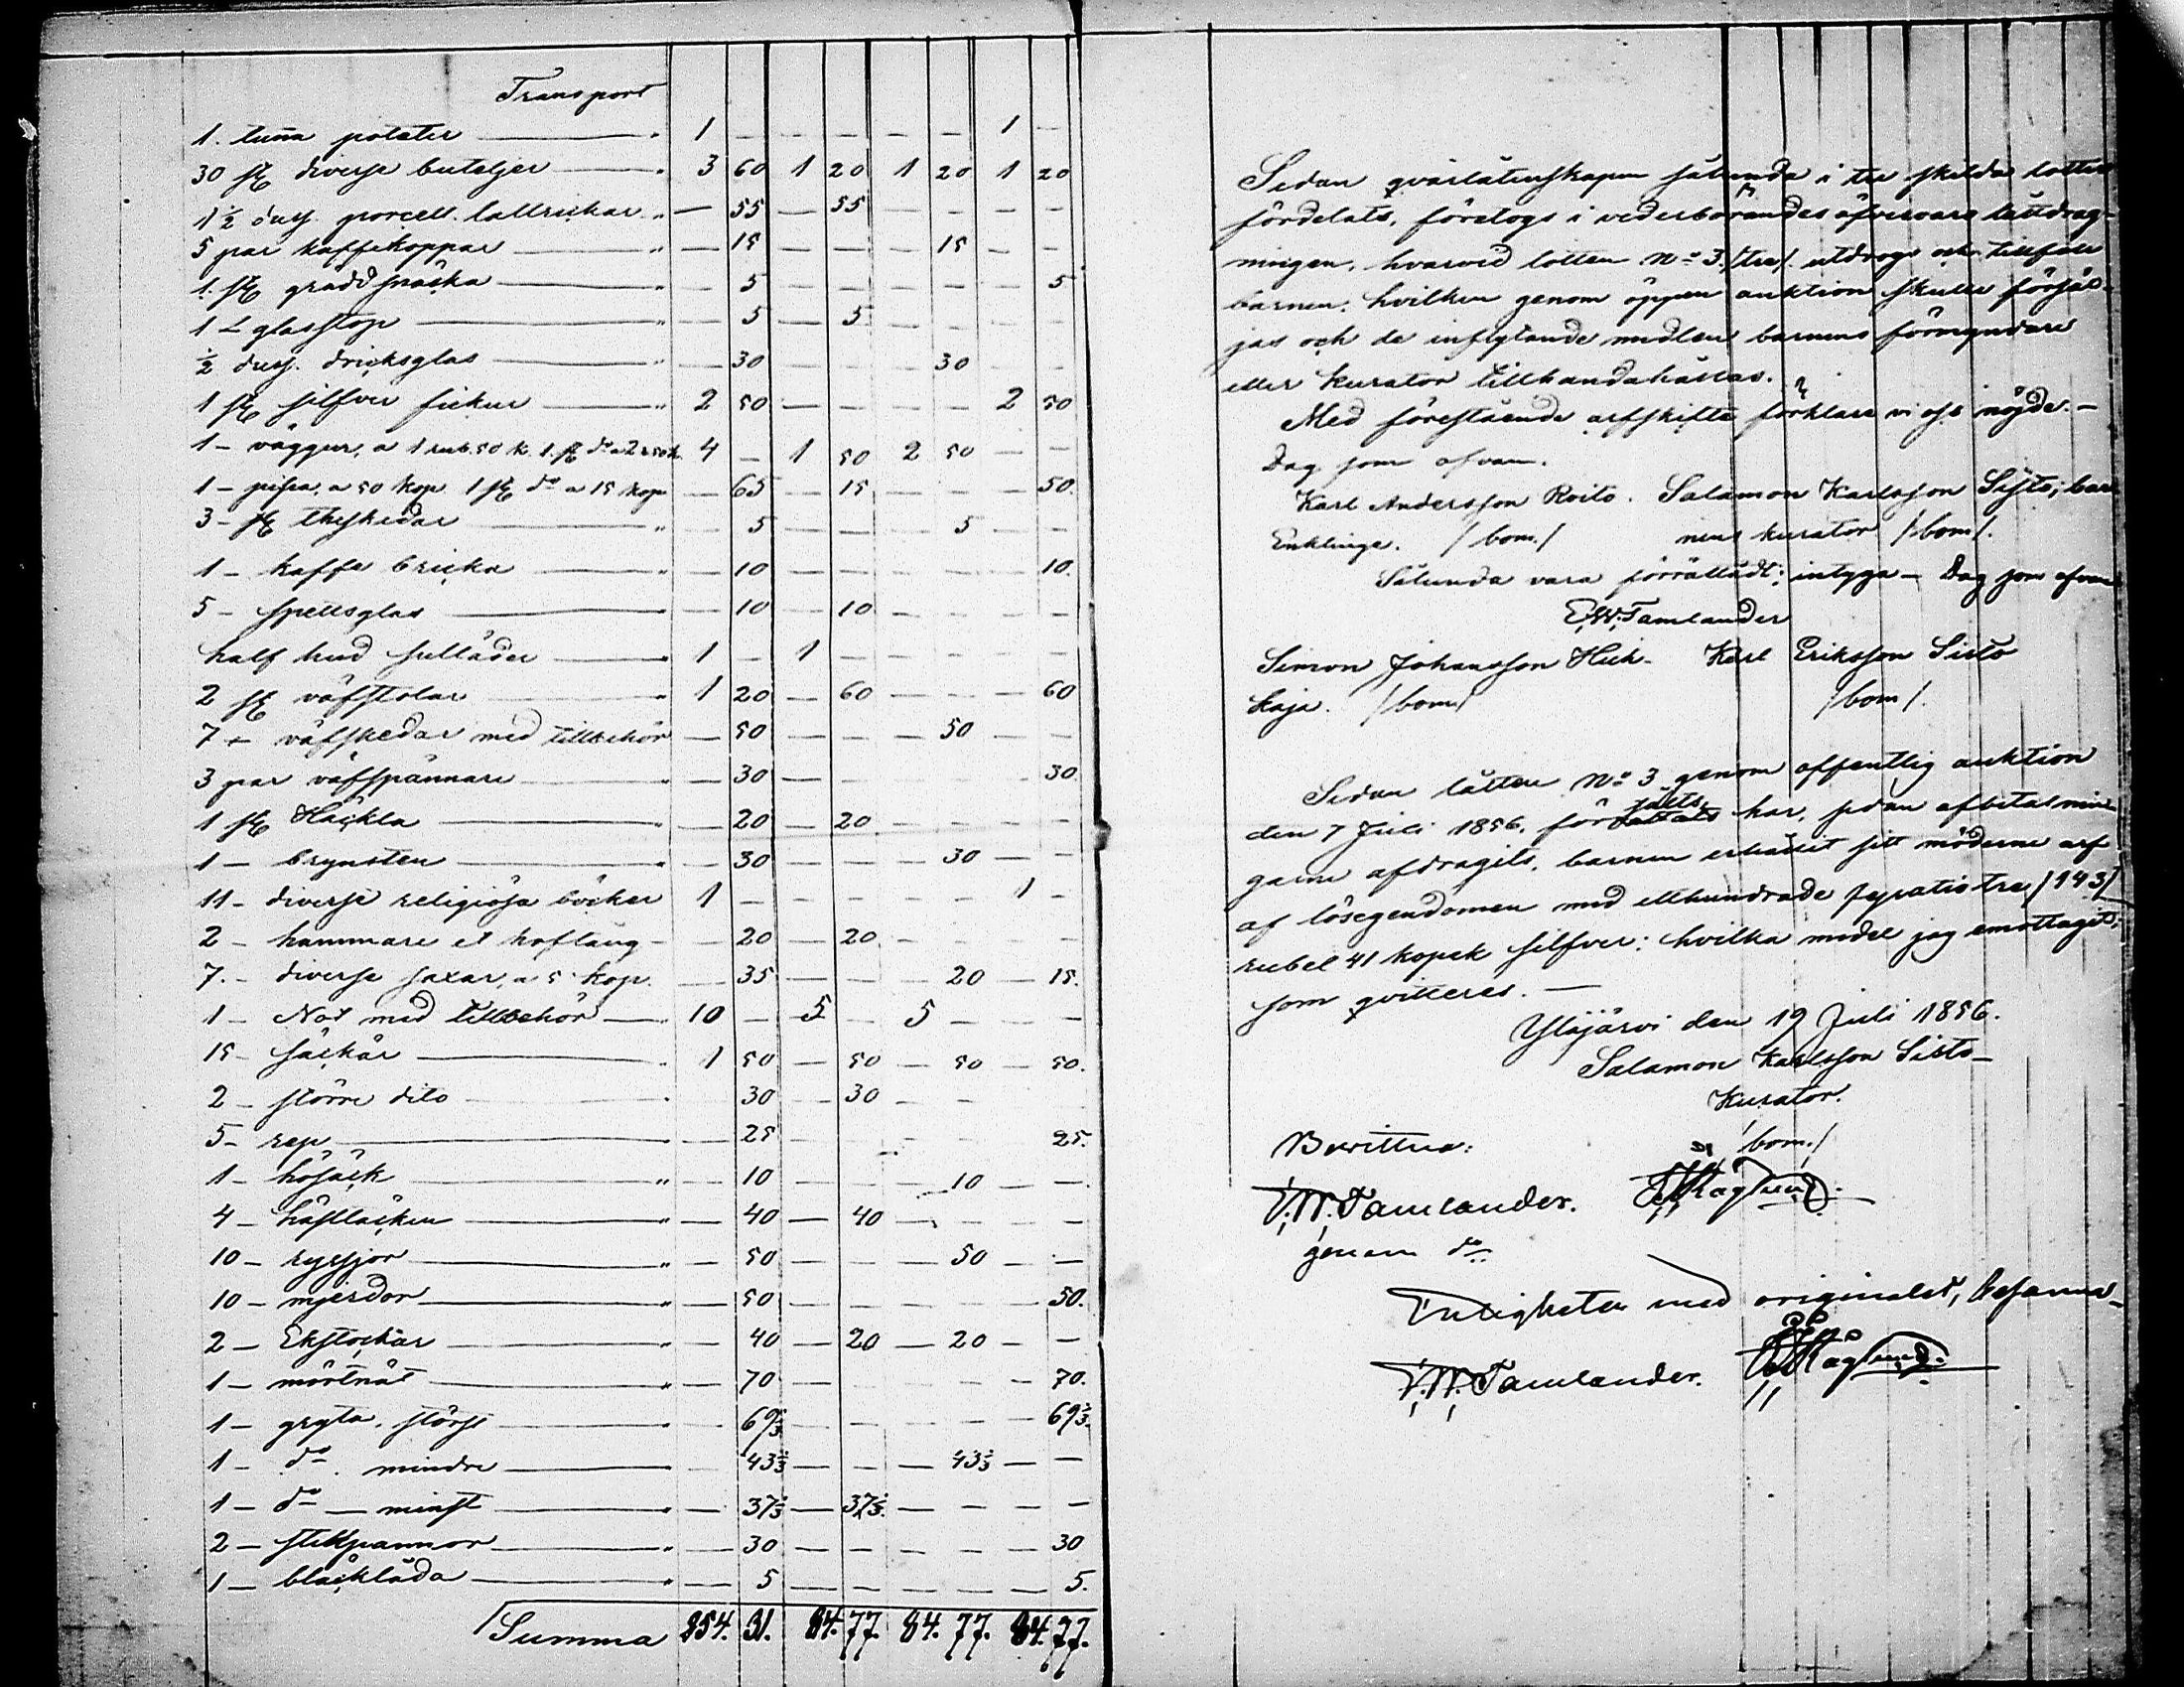 Transport
1. tuña potäter — " 1 — — — — — 1 —
30 st diverse buteljer — " 3 60 1 20 1 20 1 20
1½ duss. porcell. tallrickar " — 55 — 55 — — — —
5 par kaffekoppar — " — 15 — — — 15 — —
1. st gräddsnäcka — " — 5 — — — — — 5
1 glasstop — " — 5 — 5 — — — —
½ duss. dricksglas — " — 30 — — — 30 — —
1 st silfver fickur — " 2 50 — — — — 2 50
1 — väggur, a 1 rub. 50 k. 1. st do a 2 r 50 k. 4 — 1 50 2 50 — —
1 — a 50 kop 1 st do a 15 kop — 65 — 15 — — — 50.
3 — st theskedar — " — 5 — — — 5 — —
1 — kaffe bricka — " — 10 — — — — — 10.
5 — spetsglas — " — 10 — 10 — — — —
half hud sulläder — " 1 — 1 — — — — —
2 st väfstolar — " 1 20 — 60 — — — 60
7 — väfskedar med tillbehör — 50 — — — 50 — —
3 par väfspännare — " — 30 — — — — — 30.
1 st Häckla — " — 20 — 20 — — — —
1 — brynsten — " — 30 — — — 30 — —
11 — diverse religiösa böcker 1 — — — — — 1 —
2 — hammare et hoftång — — 20 — 20 — — — —
7. — diverse saxar, a 5 kop. — 35 — — — 20 — 15.
1 — Not med tillbehör — " 10 — 5 — 5 — — —
15 — säckar — " 1 50 — 50 — 50 — 50.
2 — större dito — " 30 — 30 — —
5 — rep — " — 25 — — — — — 25.
1 — hösäck — " — 10 — — — 10 — —
4 — hästtäcken — " — 40 — 40 — — — —
10 — ryssjor — " — 50 — — — 50 — —
10 — mjerdor — " — 50 — — — — — 50.
2 — Ekstockar — " — 40 — 20 — 20 — —
1 — mörtnät — " — 70 — — — — — 70.
1 — gryta, störst — " — 69⅓ — — — — — 69⅓
1 — do. mindre — " — 43⅓ — — — 43⅓ — —
1 — do — minst — " — 37⅓ — 37⅓ — — — —
2 — stekpannor — " — 30 — — — — — 30
1 — bläcklåda — " — 5 — — — — — 5.
Summa 254. 31. 84. 77. 84. 77. 84. 77.
Sedan qvarlåtenskapen sålunda i tre skilda lotter
fördelats, företogs i vederbörandes öfvervaro lottdrag-
ningen, hvarvid lotten No 3. /tre/. utdrogs och tillföll
barnen; hvilken genom öppen auktion skulle försäl-
jas och de inflytande medlen barnens förmyndare
eller kurator tillhandahållas.
Med förestående arfskifte förklare vi oss nöjde. —
Dag som ofvan.
Karl Andersson Roito. Salamon Karlsson Sisto; bar-
Enklinge. /bom./ nens kurator /bom/.
Sålunda vara förrättadt; intyga — Dag som ofvan
E. W. Tamlander
Simon Johansson Huh- Karl Eriksson Sisto
kaja. /bom/ /bom/.
Sedan lotten No 3 genom offentlig auktion
den 7 Juli 1856. försålts har, sedan afbetalnin-
garne afdragits, barnen erhållit sitt möderne arf
af lösegendomen med etthundrade fyratiotre /143/
rubel 41 kopek silfver: hvilka medel jag emottagit;
som qvitteres. —
Ylöjärvi den 19 Juli 1856.
Salamon Karlsson Sisto —
Kurator.
/bom./
Bevittna:
E. W. Tamlander. Häglund.
genom do
Enligheten med originalet, besanna —
E. W. Tamlander. Häglund.